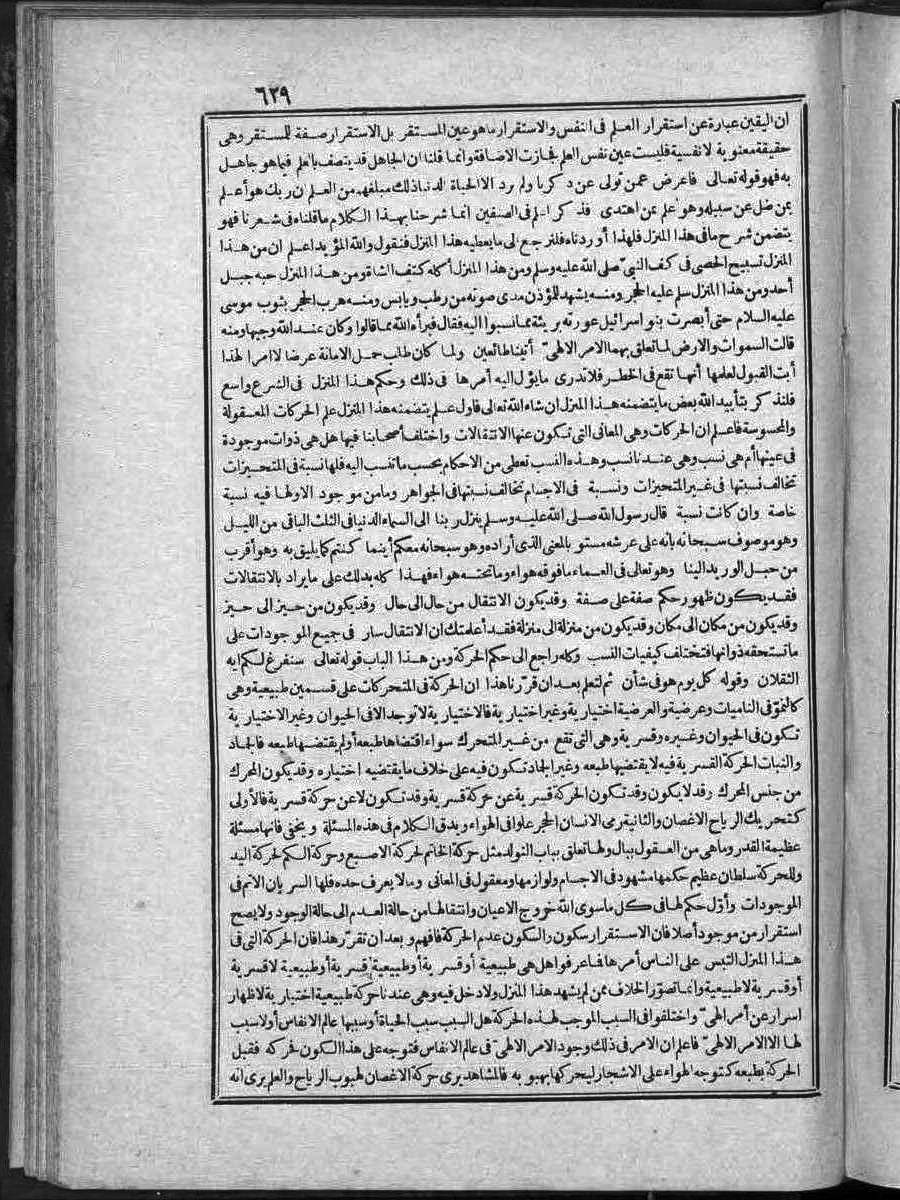 ٦٢٩
ان اليقين عبارة عن استقرار العلم فى النفس والاستقرار ما هو عين المستقر بل الاستقرار صفة للمستقر وهى
حقيقة معنوية لا نفسية فليست عين نفس العلم فجازت الاضافة وانما قلنا ان الجاهل قد يتصف بالعلم فيما هو جاهل
به فهو قوله تعالى فاعرض عمن تولى عن ذكرنا ولم يرد الا الحياة الدنيا ذلك مبلغهم من العلم ان ربك هو أعلم
بمن ضل عن سبيله وهو أعلم بمن اهتدى فذكر العلم فى الصنفين انما شرحنا بهذا الكلام ما قلناه فى شعرنا فهو
يتضمن شرح ما فى هذا المنزل فلهذا أوردناه فلنرجع الى ما يعطيه هذا المنزل فنقول والله المؤيد اعلم ان من هذا
المنزل تسبيح الحصى فى كف النبىّ صلى الله عليه وسلم ومن هذا المنزل أكله كتف الشاة ومن هذا المنزل حبه جبل
أحد ومن هذا المنزل سلم عليه الحجر ومنه يشهد للمؤذن مدى صوته من رطب ويابس ومنه هرب الحجر بثوب موسى
عليه السلام حتى أبصرت بنو اسرائيل عورته بريئة مما نسبوا اليه فقال فبرأه الله مما قالوا وكان عند الله وجيها ومنه
قالت السموات والارض لما تعلق بهما الامر الالهىّ أتينا طائعين ولما كان طلب حمل الامانة عرضا لا أمرا لهذا
أبت القبول لعلمها أنها تقع فى الخطر فلا ندرى ما يؤل اليه أمرها فى ذلك وحكم هذا المنزل فى الشرع واسع
فلنذكر بتأييد الله بعض ما يتضمنه هذا المنزل ان شاء الله تعالى فاول علم يتضمنه هذا المنزل علم الحركات المعقولة
والمحسوسة فاعلم ان الحركات وهى المعانى التى تكون عنها الانتقالات واختلف أصحابنا فيها هل هى ذوات موجودة
فى عينها أم هى نسب وهى عندنا نسب وهذه النسب تعطى من الاحكام بحسب ما تنسب اليه فلها نسبة فى المتحيزات
تخالف نسبتها فى غير المتحيزات ونسبة فى الاجسام تخالف نسبتها فى الجواهر وما من موجود الا ولها فيه نسبة
خاصة وان كانت نسبة قال رسول الله صلى الله عليه وسلم ينزل ربنا الى السماء الدنيا فى الثلث الباقى من الليل
وهو موصوف سبحانه بانه على عرشه مستو بالمعنى الذى أراده وهو سبحانه معكم أينما كنتم كما يليق به وهو أقرب
من حبل الوريد الينا وهو تعالى فى العماء ما فوقه هواء وما تحته هواء فهذا كله يدلك على ما يراد بالانتقالات
فقد يكون ظهور حكم صفة على صفة وقد يكون الانتقال من حال الى حال وقد يكون من حيز الى حيز
وقد يكون من مكان الى مكان وقد يكون من منزلة الى منزلة فقد أعلمتك ان الانتقال سار فى جميع الموجودات على
ما تستحقه ذواتها فتختلف كيفيات النسب وكله راجع الى حكم الحركة ومن هذا الباب قوله تعالى سنفرغ لكم ايه
الثقلان وقوله كل يوم هو فى شأن ثم لتعلم بعد ان قررنا هذا ان الحركة فى المتحركات على قسمين طبيعية وهى
كالنموّ فى الناميات وعرضية والعرضية اختيارية وغير اختيارية فالاختيارية لا توجد الا فى الحيوان وغير الاختيارية
تكون فى الحيوان وغيره وقسرية وهى التى تقع من غير المتحرك سواء اقتضاها طبعه أو لم يقتضها طبعه فالجاد
والنبات الحركة القسرية فيه لا يقتضيها طبعه وغير الجاد تكون فيه على خلاف ما يقتضيه اختياره وقد يكون المحرك
من جنس المحرك وقد لا يكون وقد تكون الحركة قسرية عن حركة قسرية وقد تكون لا عن حركة قسرية فالأولى
كتحريك الرياح الاغصان والثانية رمى الانسان الحجر علوا فى الهواء ويدق الكلام فى هذه المسئلة ويخفى فانها مسئلة
عظيمة القدر وما هى من العقول ببال ولها تعلق بباب التولد مثل حركة الخاتم لحركة الاصبع وحركة الكم لحركة اليد
وللحركة سلطان عظيم حكمها مشهود فى الاجسام ولوازمها ومعقول فى المعانى وما لا يعرف حده فلها السريان الاتم فى
الموجودات وأوّل حكم لها فى كل ما سوى الله خروج الاعيان وانتقالها من حالة العدم الى حالة الوجود ولا يصح
استقرار من موجود أصلا فان الاستقرار سكون والسكون عدم الحركة فافهم وبعد ان تقرر هذا فان الحركة التى فى
هذا المنزل التبس على الناس أمرها فاعرفوا هل هى طبيعية أو قسرية أو طبيعية قسرية أو طبيعية لا قسرية
أو قسرية لا طبيعية وانما تصوّر الخلاف ممن لم يشهد هذا المنزل ولا دخل فيه وهى عندنا حركة طبيعية اختيارية لاظهار
اسرار عن أمر الهىّ واختلفوا فى السبب الموجب لهذه الحركة هل السبب سبب الحياة أو سببها عالم الانفاس أو لا سبب
لها الا الامر الالهىّ فاعلم ان الامر فى ذلك وجود الامر الالهىّ فى عالم الانفاس فتوجه على هذا الكون فحركه فقبل
الحركة بطبعه كتوجه الهواء على الاشجار ليحركها بهبوبه فالمشاهد يرى حركة الاغصان لهبوب الرياح والعلم يرى انه